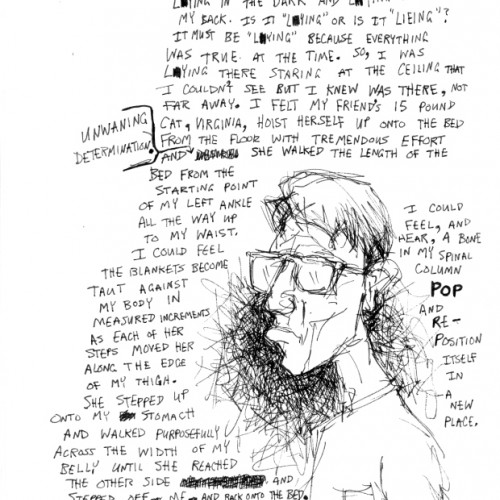 IN THE DARK AND
MY BACK. IS IT "LAYING" OR IS IT "LIEING"?
IT MUST BE "LAYING" BECAUSE EVERYTHING
WAS TRUE AT THE TIME. SO, I WAS
LAYING THERE STARING AT THE CEILING THAT
I COULDN'T SEE BUT I KNEW WAS THERE, NOT
FAR AWAY. I FELT MY FRIEND'S 15 POUND
CAT, VIRGINIA, HOIST HERSELF UP ONTO THE BED
FROM THE FLOOR WITH TREMENDOUS EFFORT
AND SHE WALKED THE LENGTH OF THE
UNWANING
DETERMINATION.
BED FROM THE
STARTING POINT
OF MY LEFT ANKLE
ALL THE WAY UP
TO MY WAIST.
I COULD FEEL
THE BLANKETS BECOME
TAUT AGAINST
MY BODY IN
MEASURED INCREMENTS
AS EACH OF HER
STEPS MOVED HER
ALONG THE EDGE
OF MY THIGH.
SHE STEPPED UP
ONTO MY STOMACH
AND WALKED PURPOSEFULLY
ACROSS THE WIDTH OF MY
BELLY UNTIL SHE REACHED
THE OTHER SIDE AND
STEPPED OFF ME AND BACK ONTO THE BED.
I COULD
FEEL, AND
HEAR, A BONE
IN MY SPINAL
COLUMN
POP
AND
RE-
POSITION
ITSELF
IN
A
NEW
PLACE.